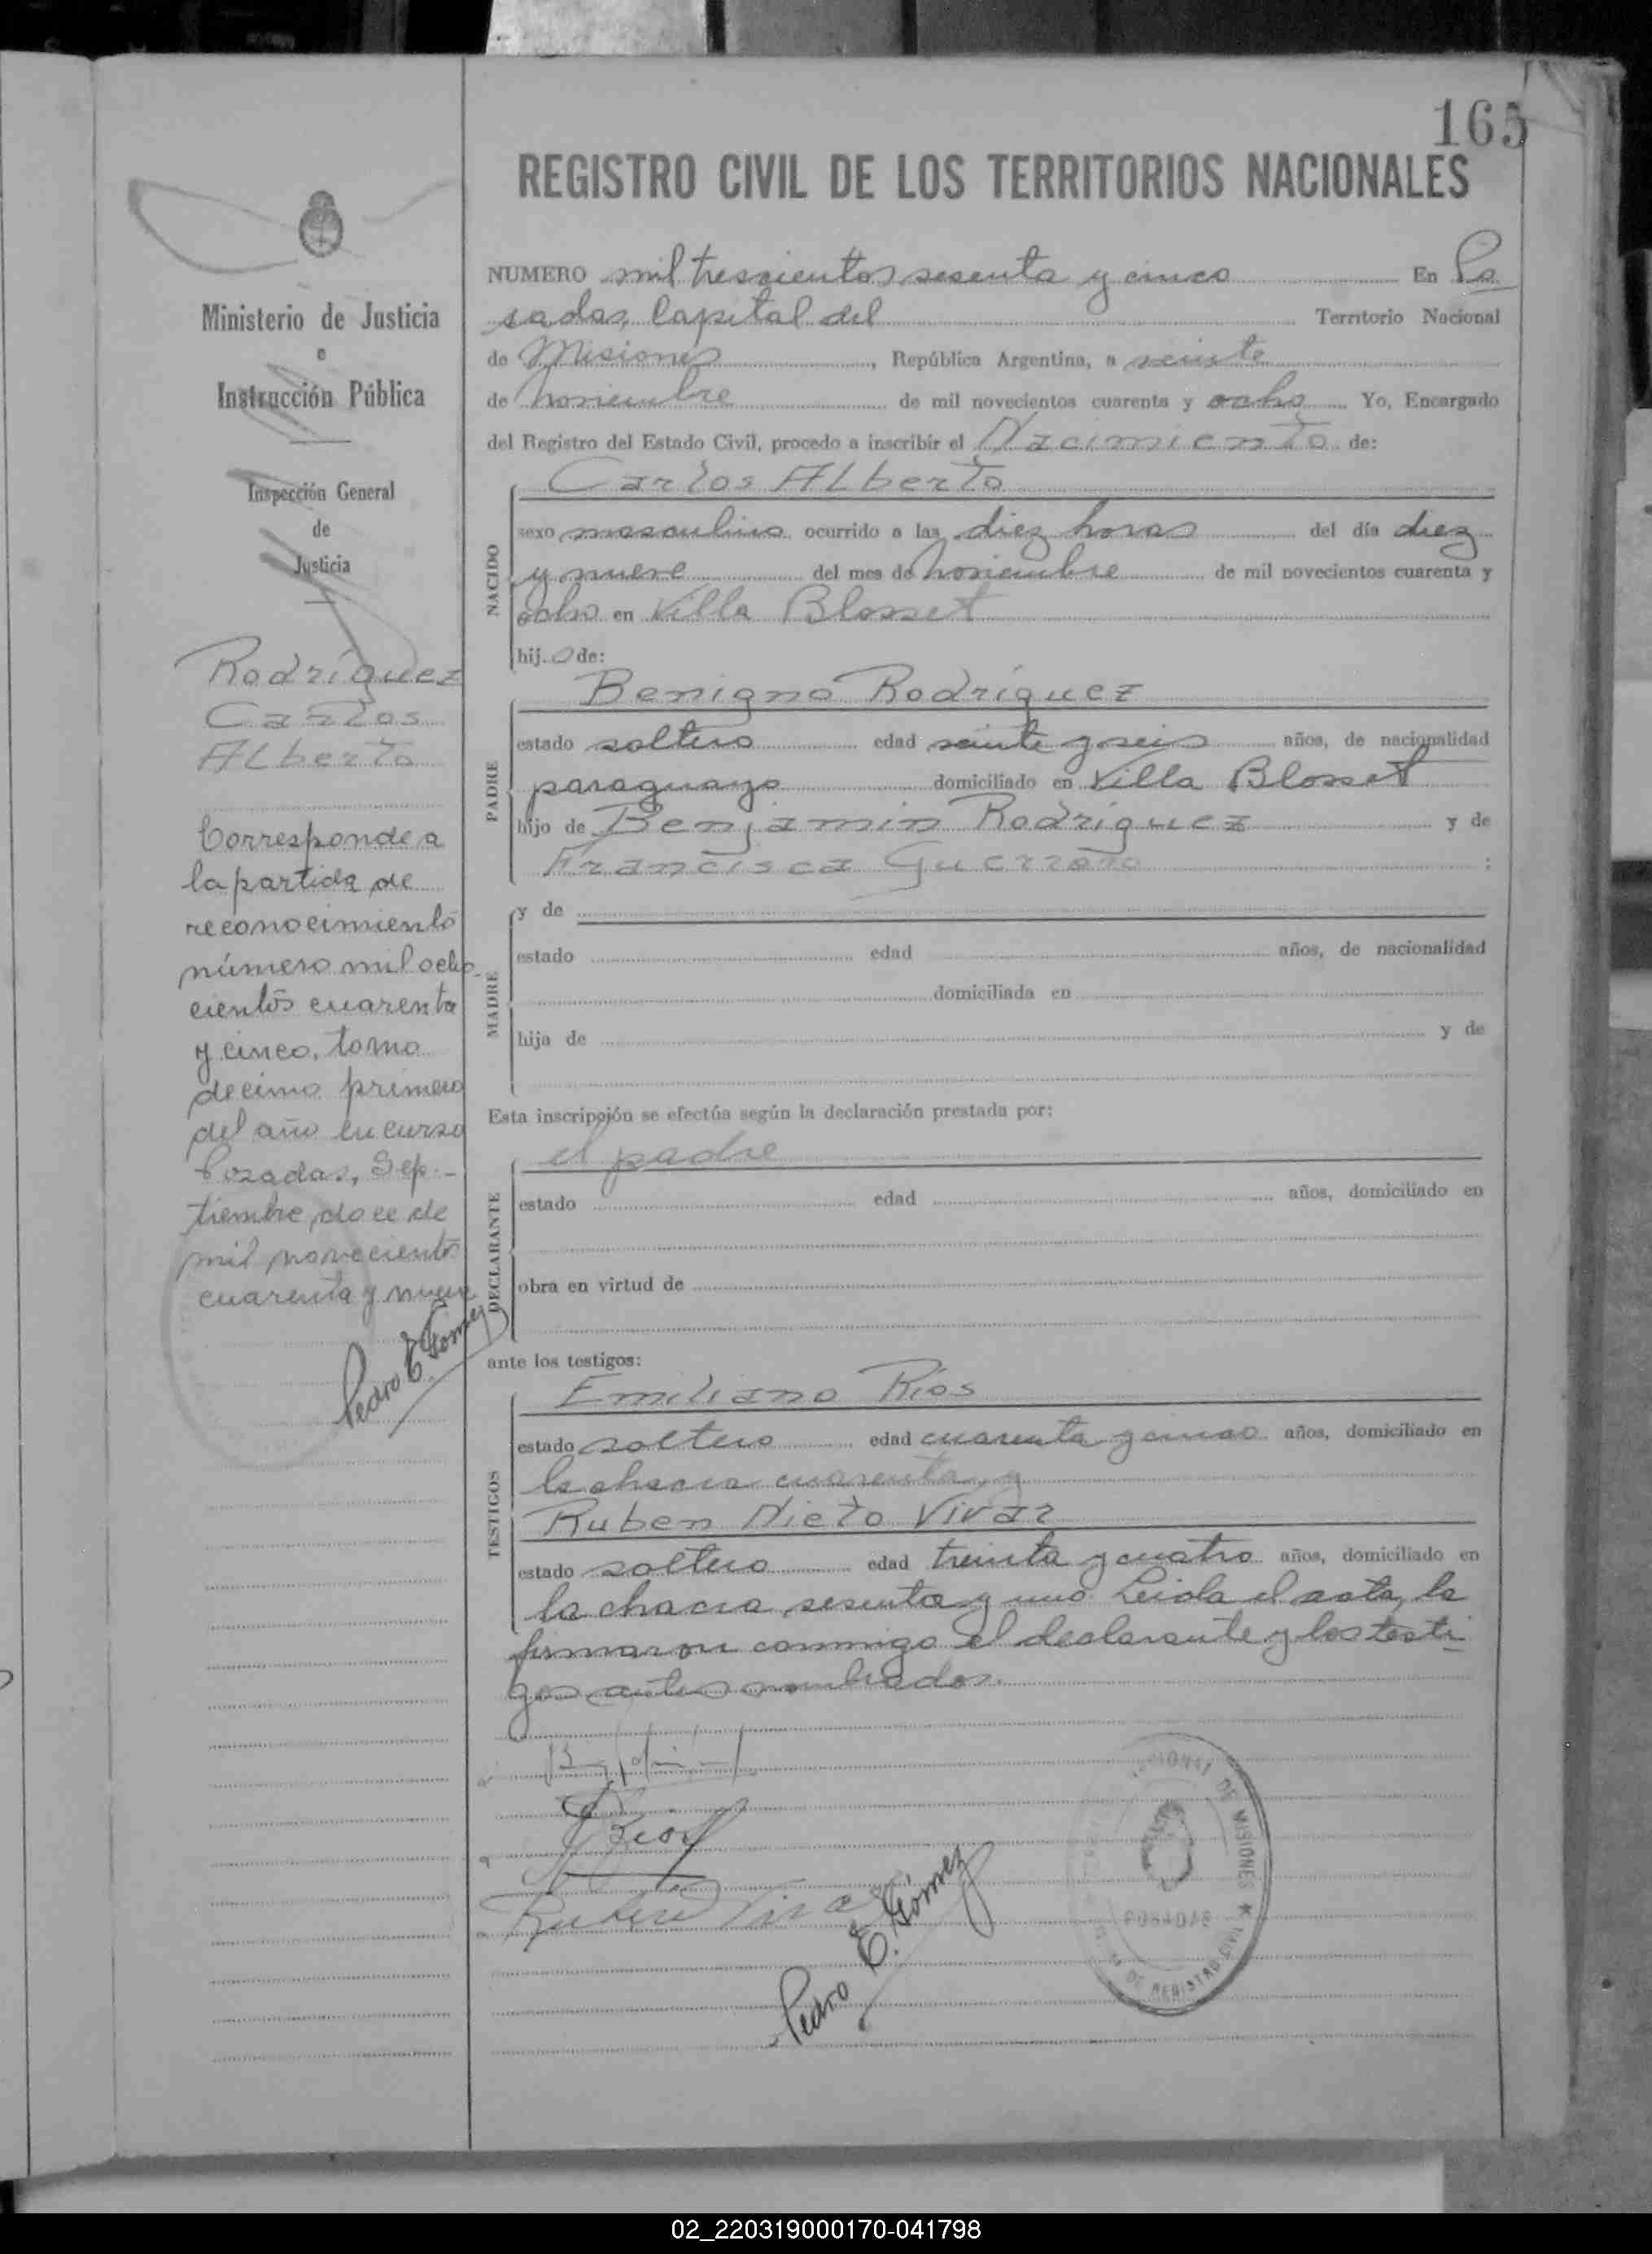 165
REGISTRO CIVIL DE LOS TERRITORIOS NACIONALES
Ministerio de Justicia
e
Instrucción Pública
Inspección General
de
Justicia
Rodríguez
Carlos
Alberto
Corresponde a
la partida de
reconocimiento
número mil ocho
cientos cuarenta
y cinco, tomo
decimo primero
del año en curso
Posadas, Sep-
tiembre doce de
mil novecientos
cuarenta y nueve
Pedro E. Gómez
NUMERO mil trescientos sesenta y cinco En Po
sadas, Capital del Territorio Nacional
de Misiones, República Argentina, a veinte
de noviembre de mil novecientos cuarenta y ocho Yo, Encargado
del Registro del Estado Civil, procedo a inscribir el Nacimiento de:
NACIDO
Carlos Alberto
sexo masculino ocurrido a las diez horas del día diez
y nueve del mes de noviembre de mil novecientos cuarenta y
ocho en Villa Blosset
hij o de:
PADRE
Benigno Rodríguez
estado soltero edad veinte y seis años, de nacionalidad
paraguayo domiciliado en Villa Blosset
hijo de Benjamin Rodríguez y de
Francisca Guerreño ;
MADRE
y de
estado edad años, de nacionalidad
domiciliada en
hija de y de
Esta inscripción se efectúa según la declaración prestada por:
DECLARANTE
el padre
estado edad años, domiciliado en
obra en virtud de
ante los testigos:
TESTIGOS
Emiliano Ríos
estado soltero edad cuarenta y cinco años, domiciliado en
la chacra cuarenta y
Ruben Nieto Vivar
estado soltero edad treinta y cuatro años, domiciliado en
la chacra sesenta y uno. Leida el acta, la
firmaron conmigo el declarante y los testi-
gos antes nombrados.
E Rios
Ruben Vivar
Pedro E. Gómez
DE MISIONES ★
POSADAS
DE REGISTRO CIVIL
02_220319000170-041798